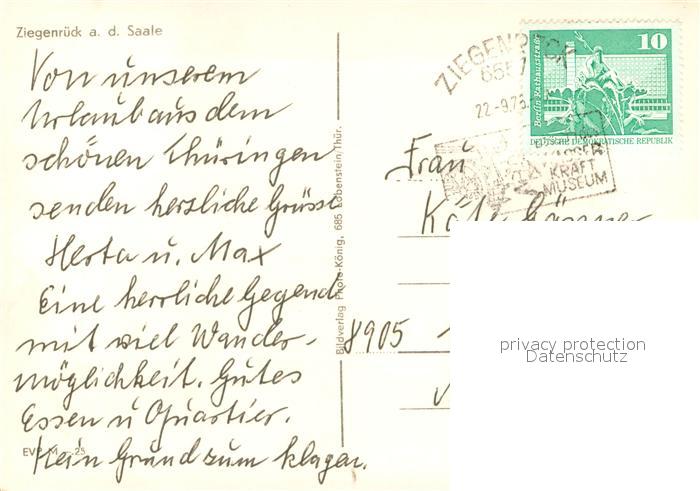 Ziegenrück a. d. Saale
Von unserem
Urlaub aus dem
schönen Thüringen
senden herzliche Grüsse
Herta u. Max
Eine herrliche Gegend
mit viel Wander-
möglichkeit. Gutes
Essen u Quartier.
Kein Grund zum klagen.
EVP M -.25
Bildverlag Photo-König, 685 Lobenstein/Thür.
ZIEGENRÜCK
6557
22.-9.75
WASSER
KRAFT
MUSEUM
10
Berlin, Rathausstraße
DEUTSCHE DEMOKRATISCHE REPUBLIK
Frau
Käte
8905
privacy protection
Datenschutz